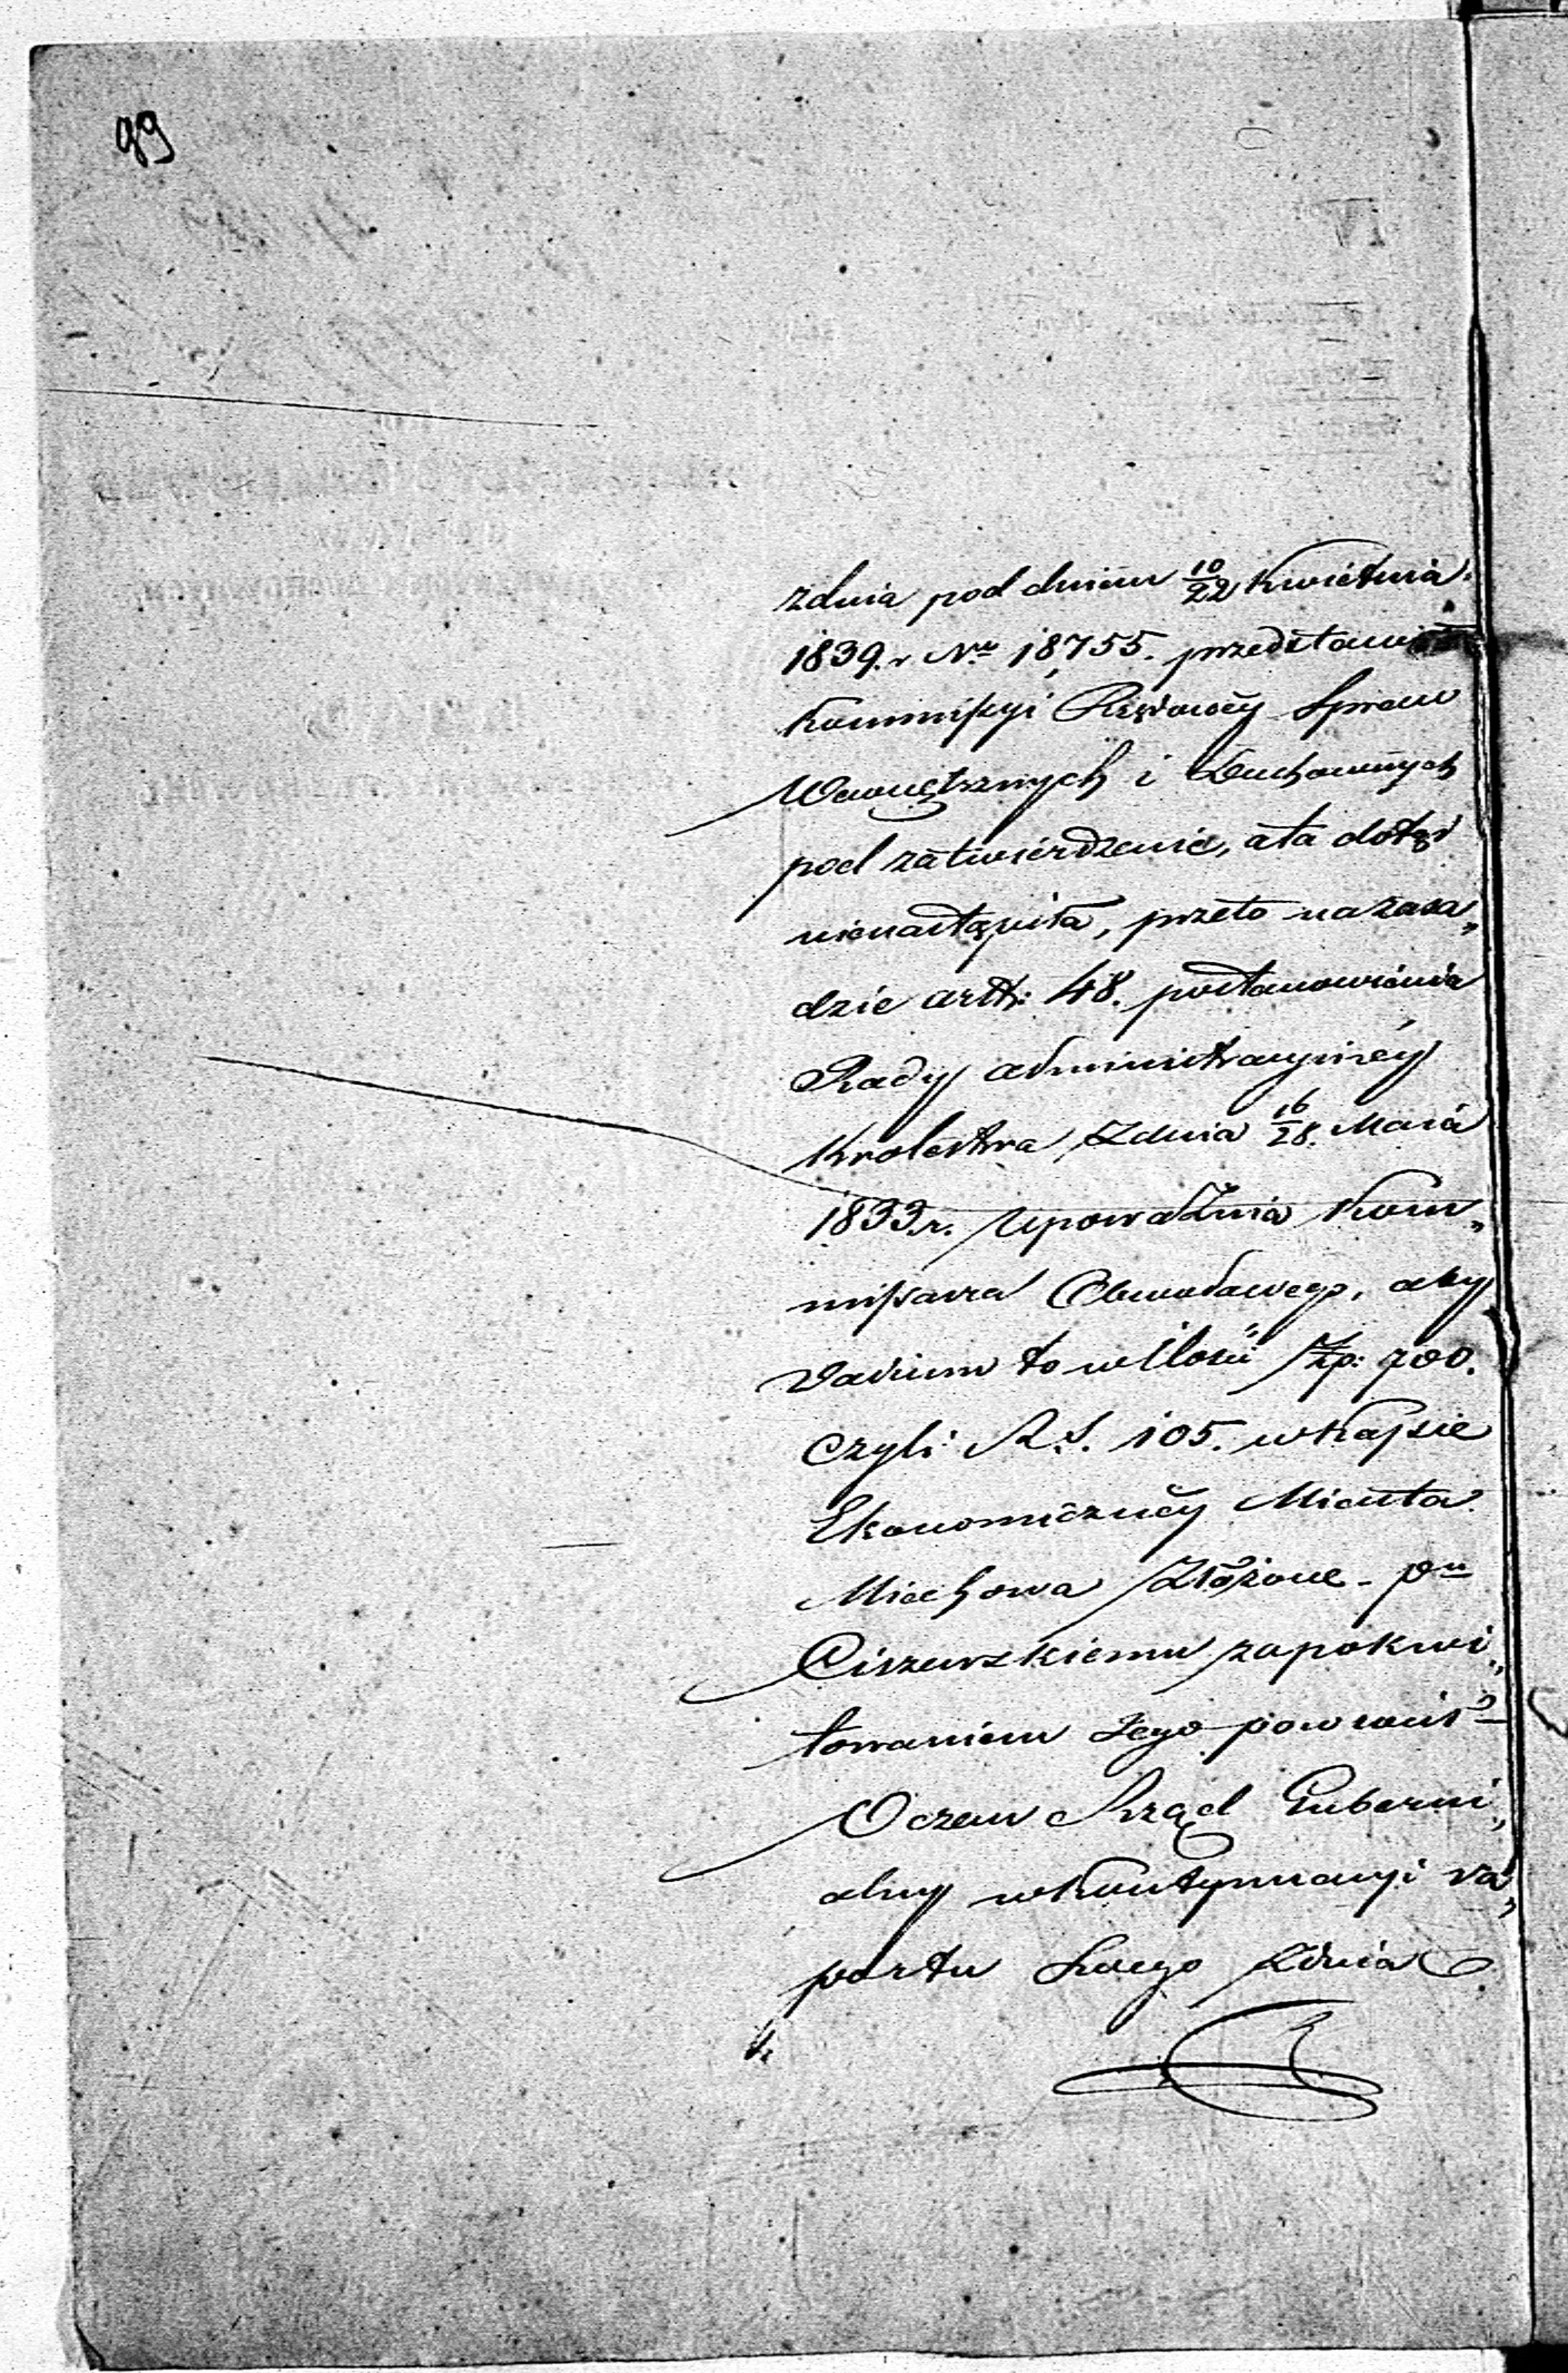 99
zdnia pod dniem 10/22 Kwietnia
1839. r Nru 18,755. przedstawił
Kommissyi Rządowéy Spraw
Wewnętrznych i Duchownych
pod zatwierdzenie, a ta dotąd
nienastąpiła, przeto na zasa„
dzie artt: 48. postanowienia
Rady administracyinéy
Krolestwa Zdnia 16/28. Maia
1833 r. Upoważnia Kom„
missarza Obwodowego, aby
Vadium to w Ilości Zp: 700.
czyli R. S. 105. w Kassie
Ekonomicznéy Miasta
Miechowa Złożone - Pnu
Ciszewskiemu za pokwi„
towaniem Jego powrócił -
O czem Rząd Guberni„
alny w Kontynuacyi ra„
portu Swego Zdnia